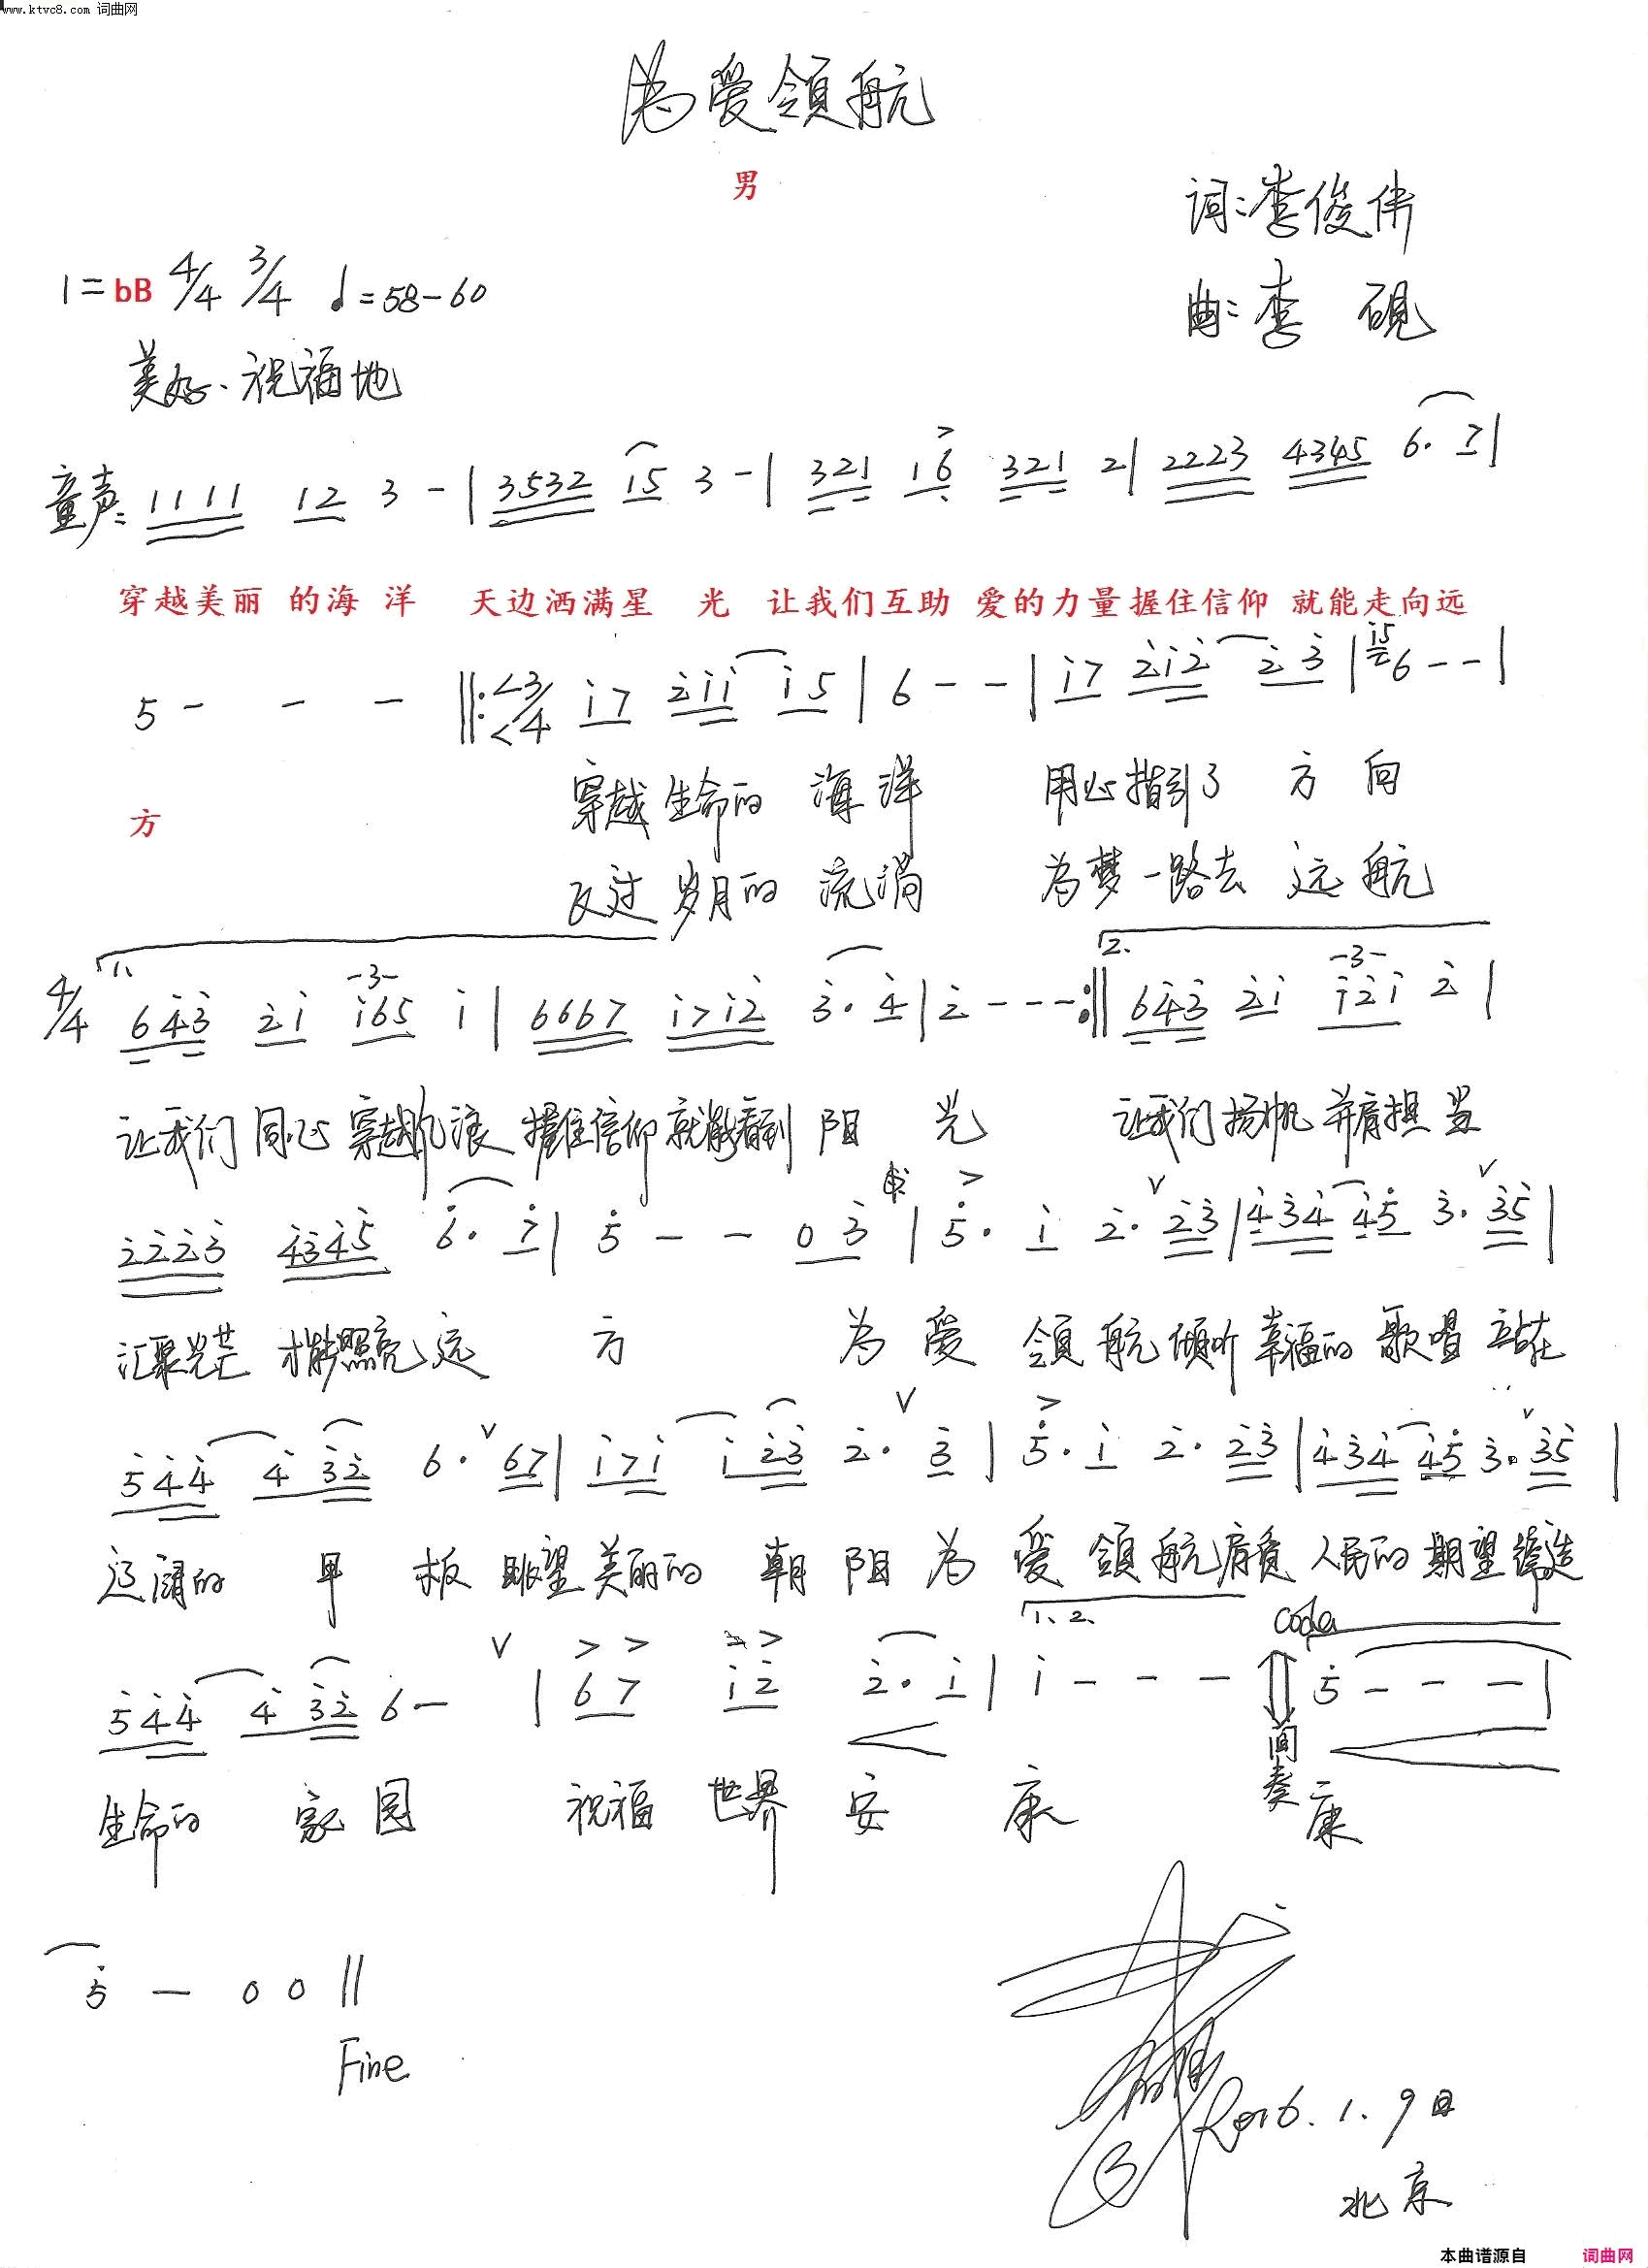 www.ktvc8.com 词曲网
为爱领航
男
词:李俊伟
1=bB 4/4 3/4 ♩=58-60
曲:李 砚
美好、祝福地
童声: 1111 12 3 - | 3532 i5 3 - | 321 16 321 2 | 2223 4345 6. 7 |
穿越美丽 的海 洋 天边洒满星 光 让我们互助 爱的力量握住信仰 就能走向远
5 - - - ||: 3/4 i7 2ii i5 | 6 - - | i7 2i2 23 | i5 6 - - |
方
穿越生命的 海洋 用心指引了 方 向
岁月的 流淌 为梦一路去 远 航
1. 2.
4/4 643 2i i65 i | 6667 i7i2 3. 4 | 2 - - - :|| 643 2i i2i 2 |
让我们 同心 穿越风浪 握住信仰就能看到 阳 光 让我们扬帆 并肩担当
2223 4345 6. 7 | 5 - - 0 3 | 5. i 2. 23 | 434 45 3. 35 |
汇聚光芒 才能照亮远 方 为 爱 领 航倾听幸福的歌唱 站在
544 4 32 6. 67 | i7i i 23 2. 3 | 5. i 2. 23 | 434 45 3. 35 |
辽阔的 甲 板 眺望美丽的 朝 阳 为 爱 领 航肩负 人民的期望缔造
1、2. Coda
544 4 32 6 - | 67 i2 2. i | i - - - 5 - - - |
间奏
生命的 家 园 祝福 世界 安 康 康
5 - 0 0 ||
Fine
2016.1.9日
北京
本曲谱源自 词曲网